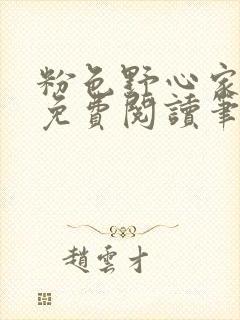 粉色野心家
免費閱讀筆
趙雲才